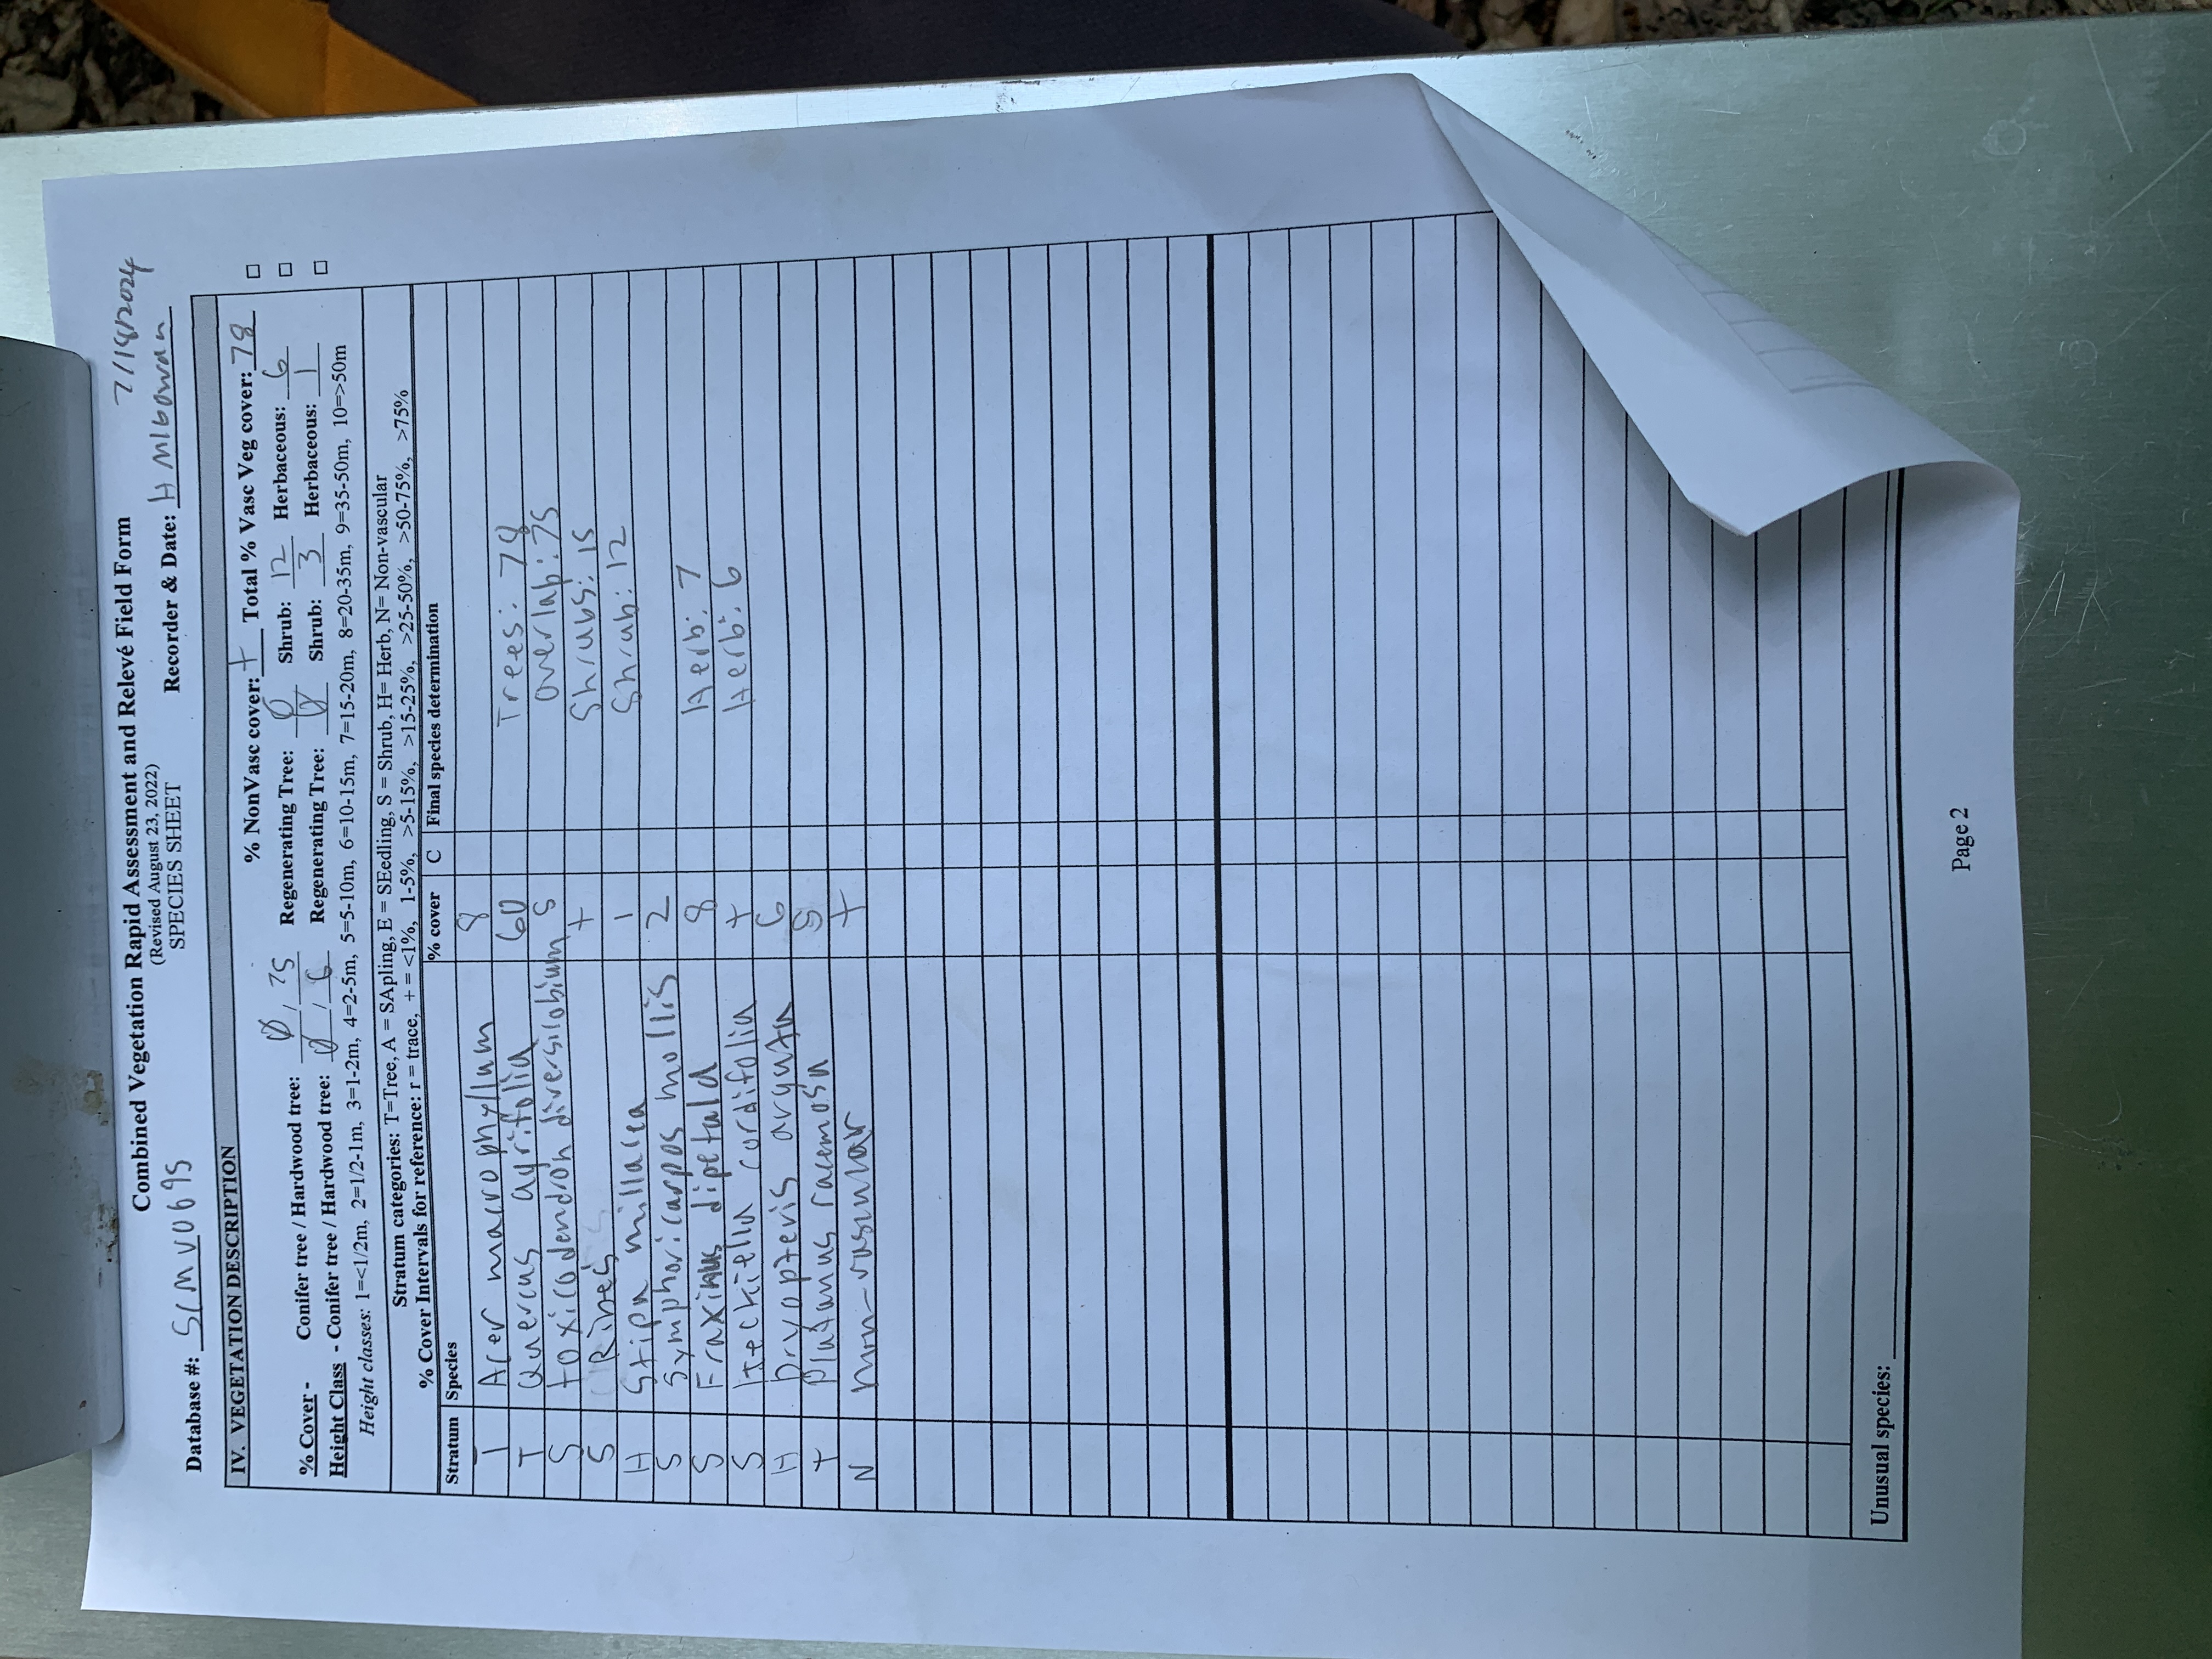 Combined Vegetation Rapid Assessment and Relevé Field Form
(Revised August 23, 2022)
SPECIES SHEET
7/18/2024
Database #: SCMV0695 Recorder & Date: H McGowan
IV. VEGETATION DESCRIPTION
% NonVasc cover: + Total % Vasc Veg cover: 78 □
% Cover - Conifer tree / Hardwood tree: Ø / 75 Regenerating Tree: Ø Shrub: 12 Herbaceous: 6 □
Height Class - Conifer tree / Hardwood tree: Ø / 6 Regenerating Tree: Ø Shrub: 3 Herbaceous: 1 □
Height classes: 1=<1/2m, 2=1/2-1m, 3=1-2m, 4=2-5m, 5=5-10m, 6=10-15m, 7=15-20m, 8=20-35m, 9=35-50m, 10=>50m
Stratum categories: T=Tree, A = SApling, E = SEedling, S = Shrub, H= Herb, N= Non-vascular
% Cover Intervals for reference: r = trace, + = <1%, 1-5%, >5-15%, >15-25%, >25-50%, >50-75%, >75%
Stratum Species % cover C Final species determination
T Acer macrophyllum 8
T Quercus agrifolia 60 Trees: 78
S toxicodendron diversilobium 5 overlap: 75
S Ribes + Shrubs: 15
H Stipa millacea 1 Shrub: 12
S Symphoricarpos mollis 2
S Fraxinus dipetala 8 Herb: 7
S Keckiella cordifolia + Herb: 6
H Dryopteris arguta 6
T Platanus racemosa
N non-vascular +
Unusual species:
Page 2